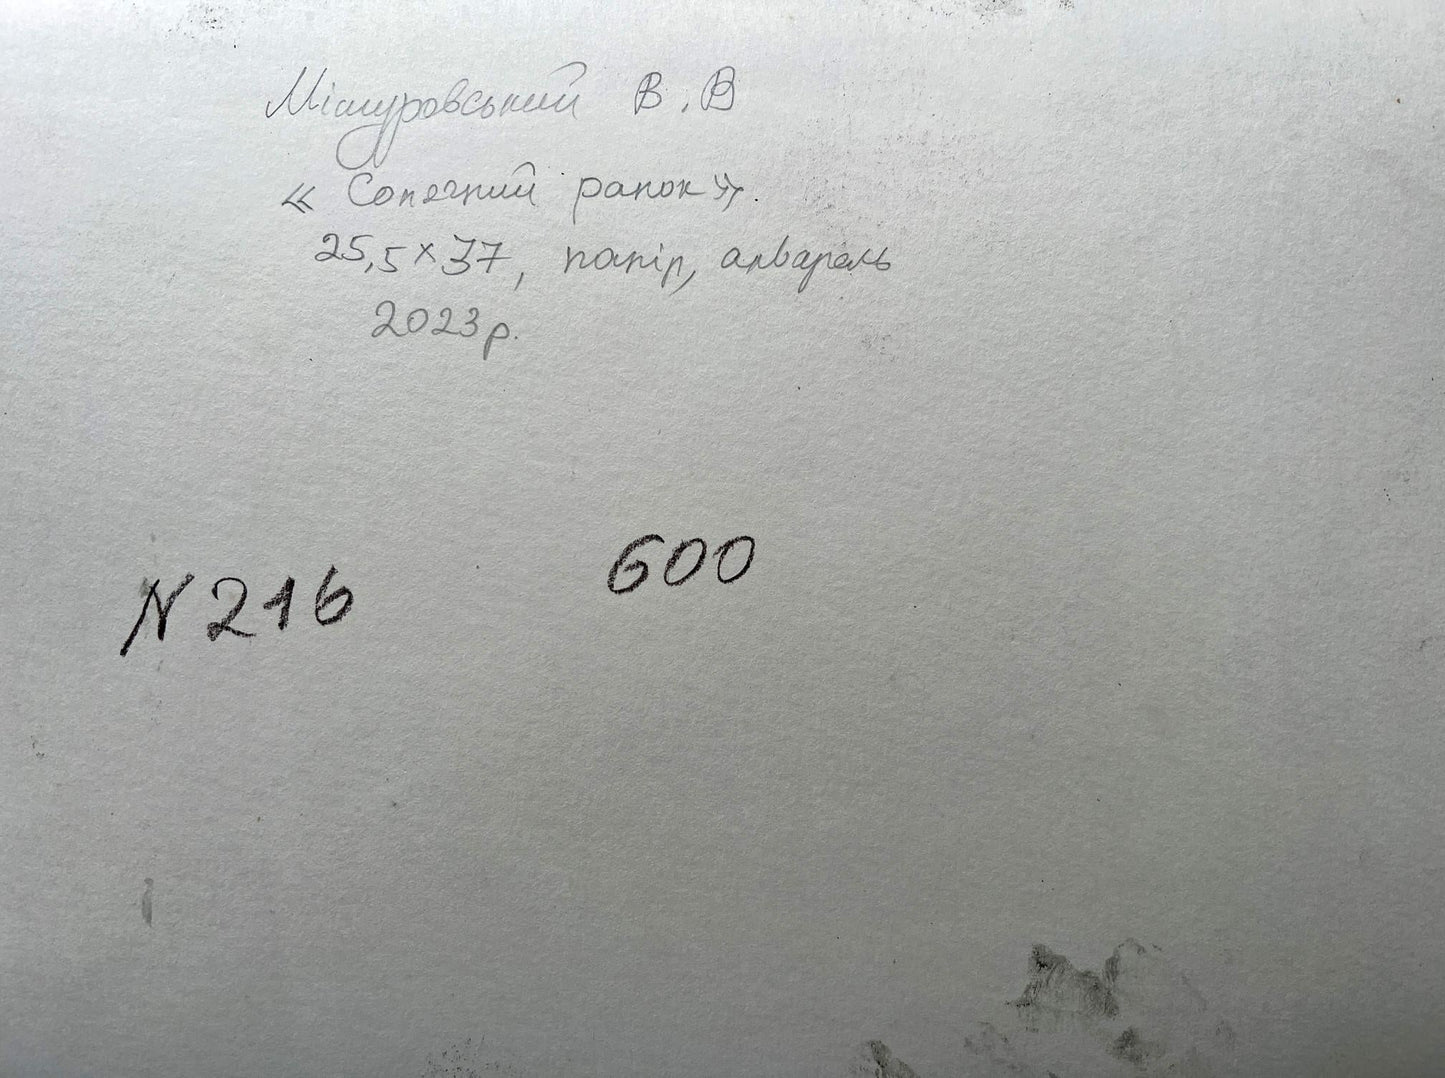 Мішуровський В.В
« Сонячний ранок».
25,5×37, папір, акварель
2023р.
N216 600